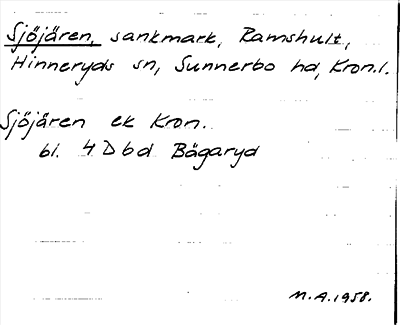 Sjöjären, sankmark, Ramshult,
Hinneryds sn, Sunnerbo hd, Kron.l.
Sjöjären ek Kron.
bl. 4 D b d Bågaryd
M.A. 1958.